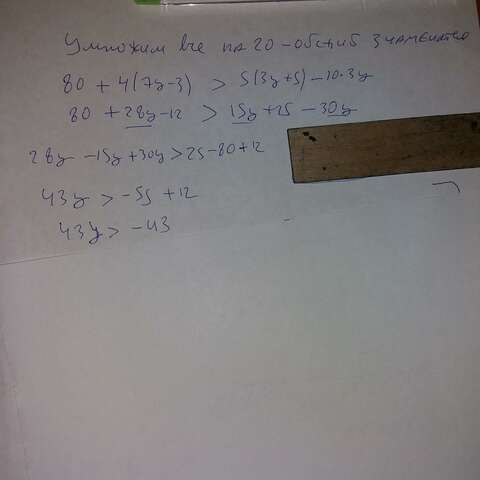 Умножим все на 20 - общий знаменатель
80 + 4(7y-3) > 5(3y+5) - 10·3y
80 + 28y - 12 > 15y + 25 - 30y
28y - 15y + 30y > 25 - 80 + 12
43y > -55 + 12
43y > -43